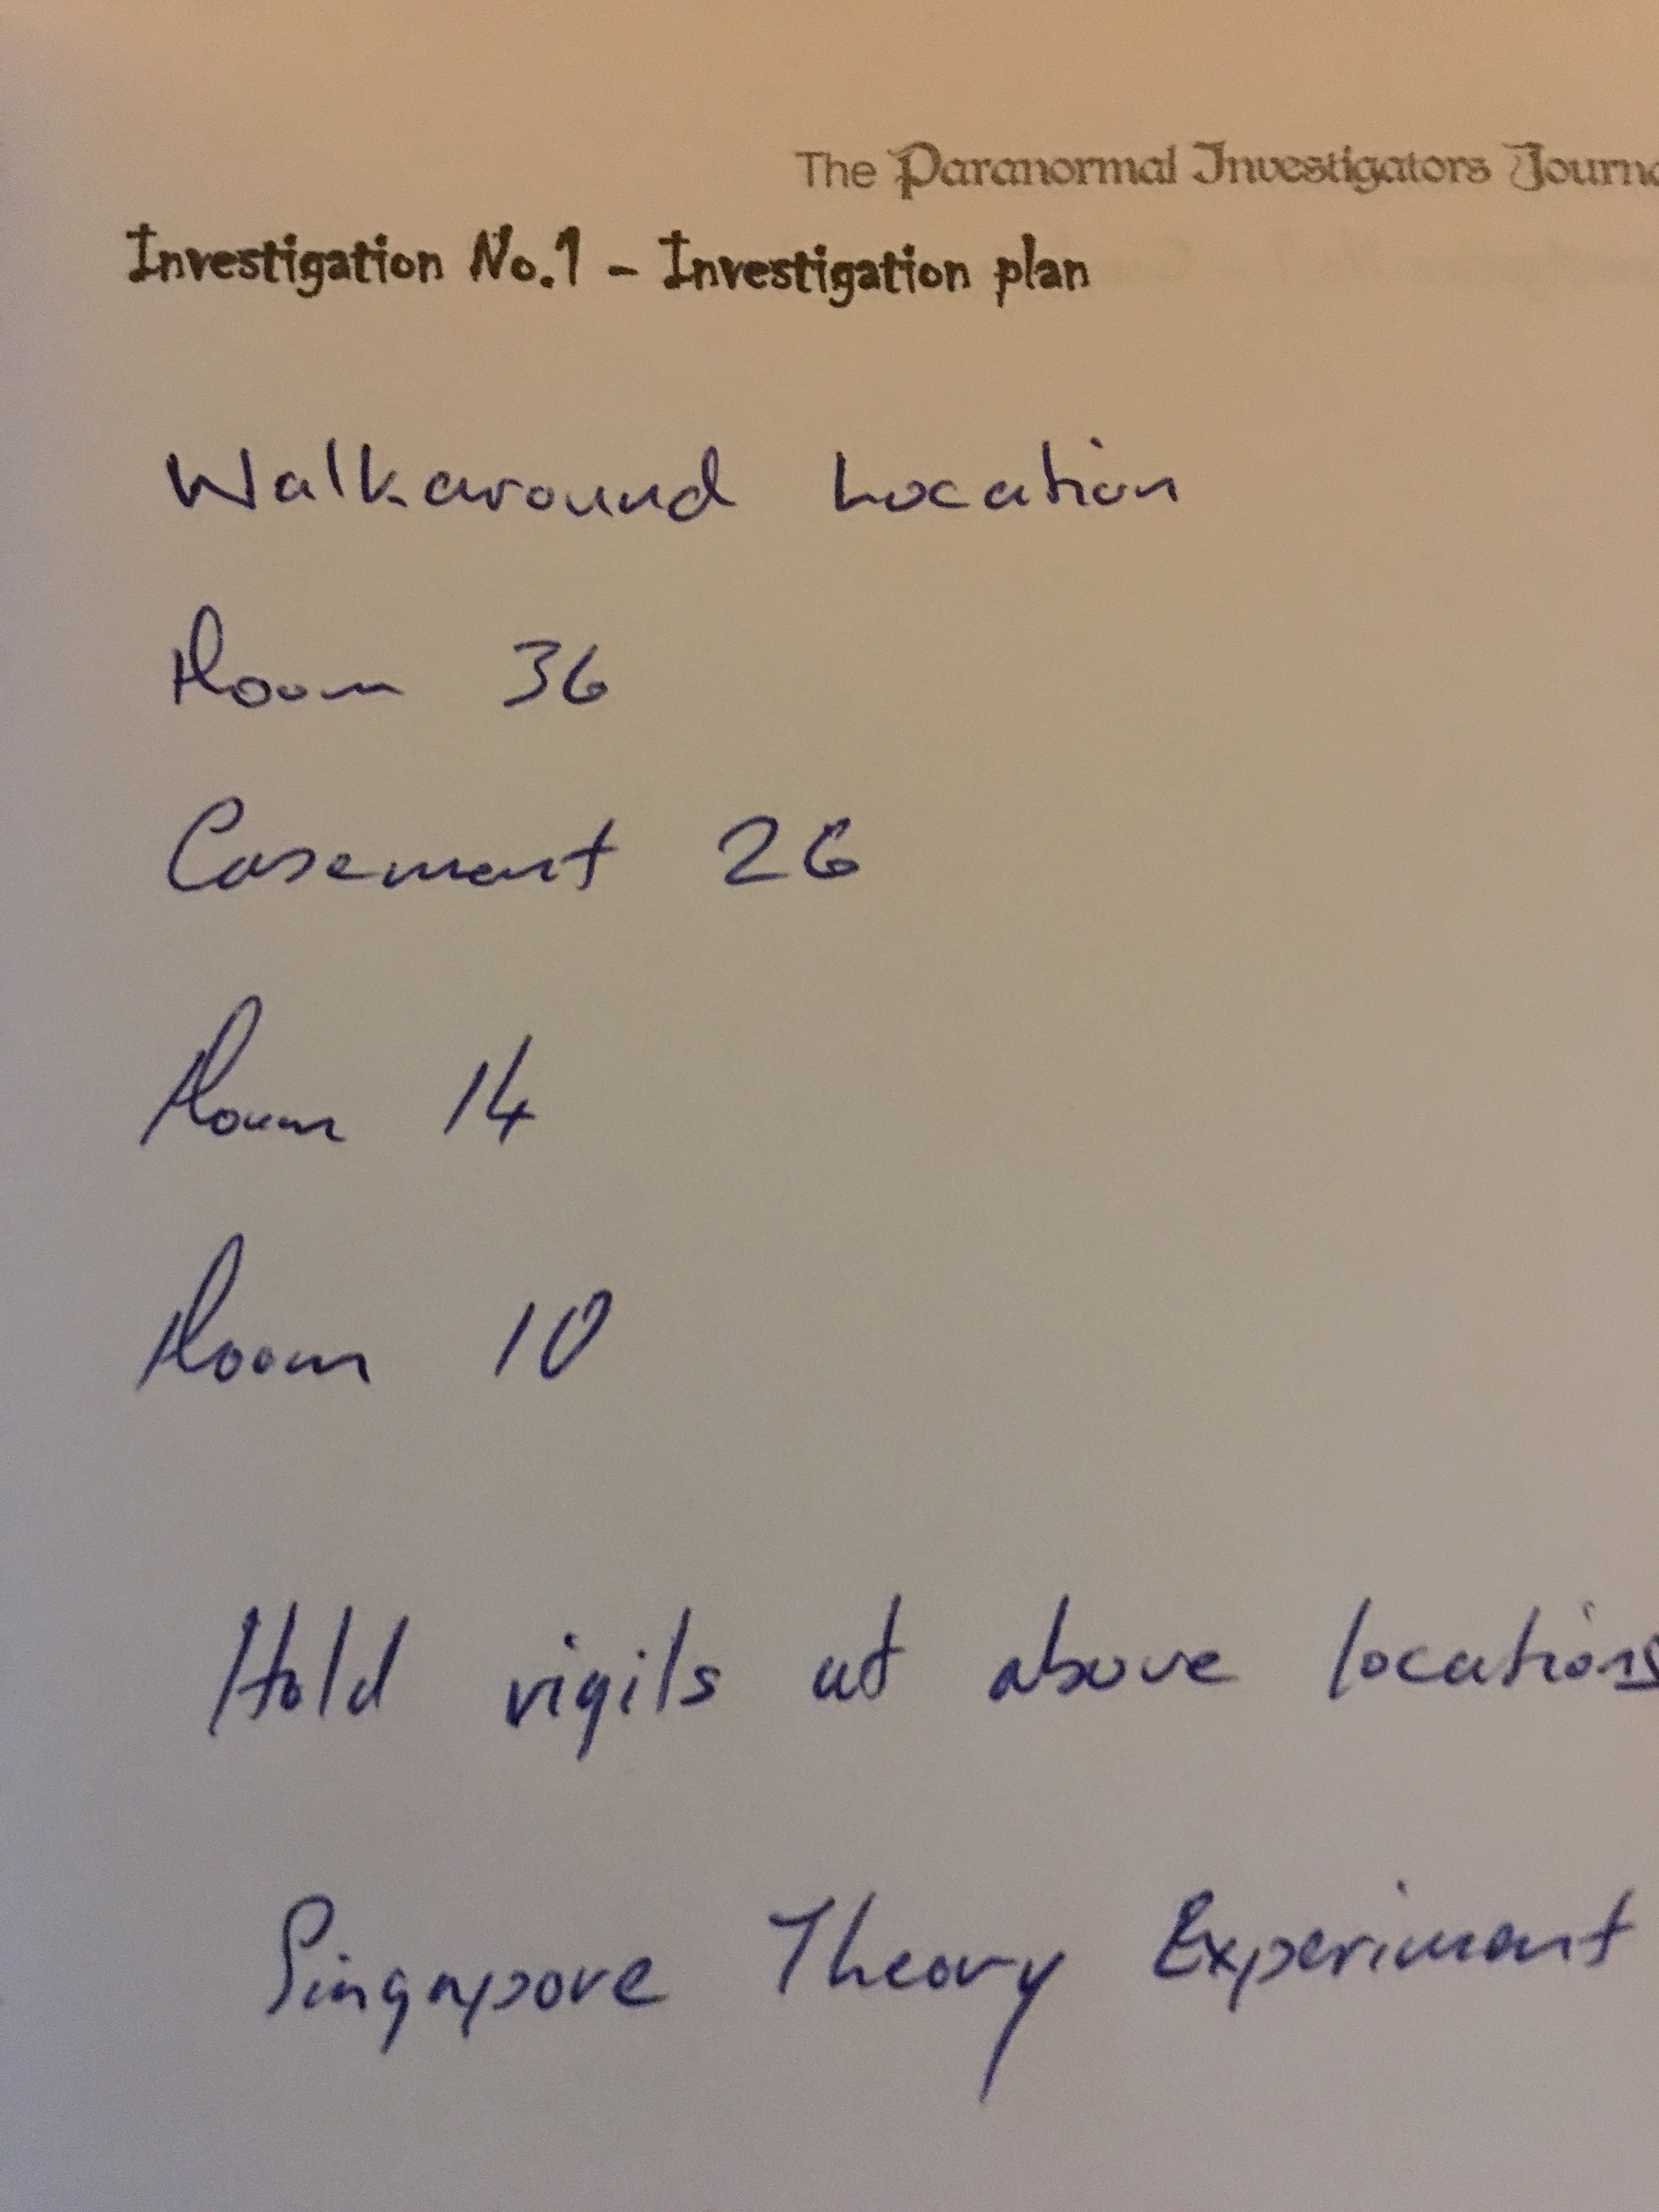 The Paranormal Investigators Journa
Investigation No.1 - Investigation plan
Walkaround Location
Room 36
Casement 26
Room 14
Room 10
Hold vigils at above locations
Singapore Theory Experiment